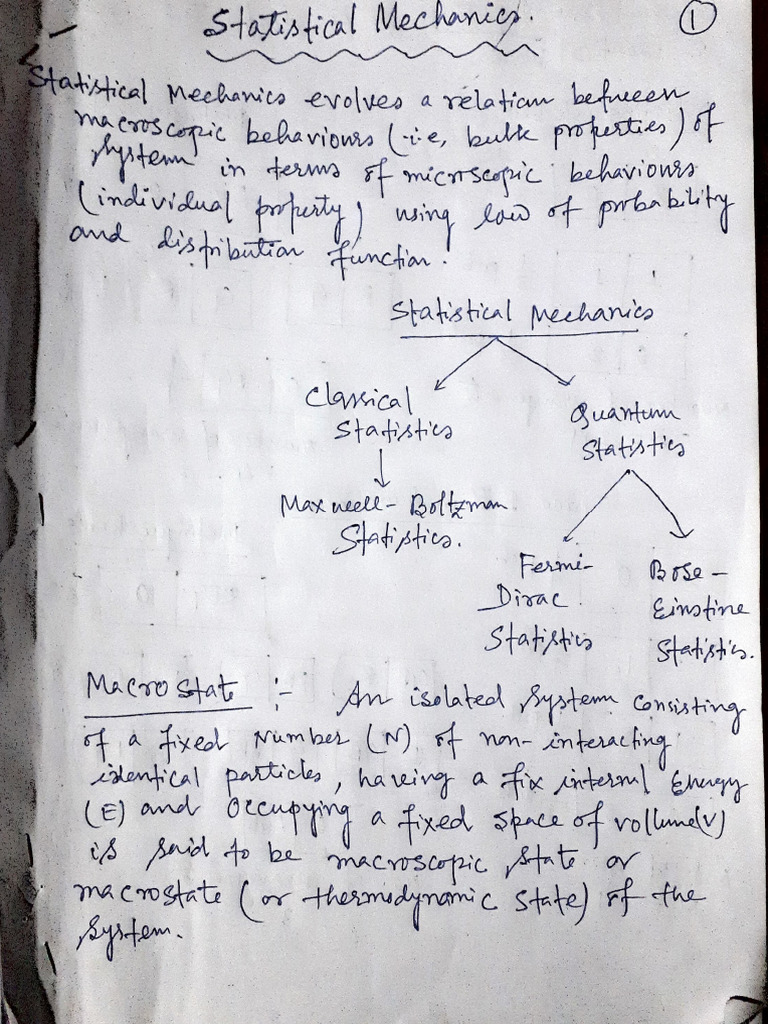 Statistical Mechanics.
1
Statistical Mechanics evolves a relation between
macroscopic behaviours (i.e, bulk properties) of
system in terms of microscopic behaviours
(individual property) using law of probability
and distribution function.
Statistical Mechanics
Classical
Statistics
Quantum
Statistics
Maxwell-Boltzman
Statistics.
Fermi-
Dirac
Statistics
Bose-
Einstine
Statistics.
Macrostate :- An isolated system consisting
of a fixed Number (N) of non-interacting
identical particles, having a fix internl Energy
(E) and occupying a fixed space of vollume(V)
is said to be macroscopic state or
macrostate (or thermodynamic state) of the
system.